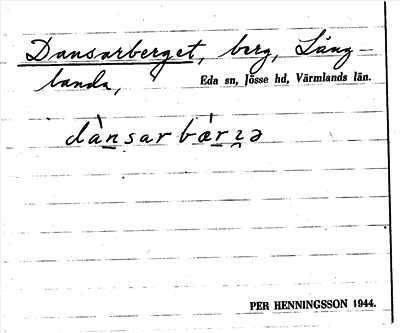 Dansarberget, berg, Lång-
banda, Eda sn, Jösse hd, Värmlands län.
dànsarbárꝛə
PER HENNINGSSON 1944.